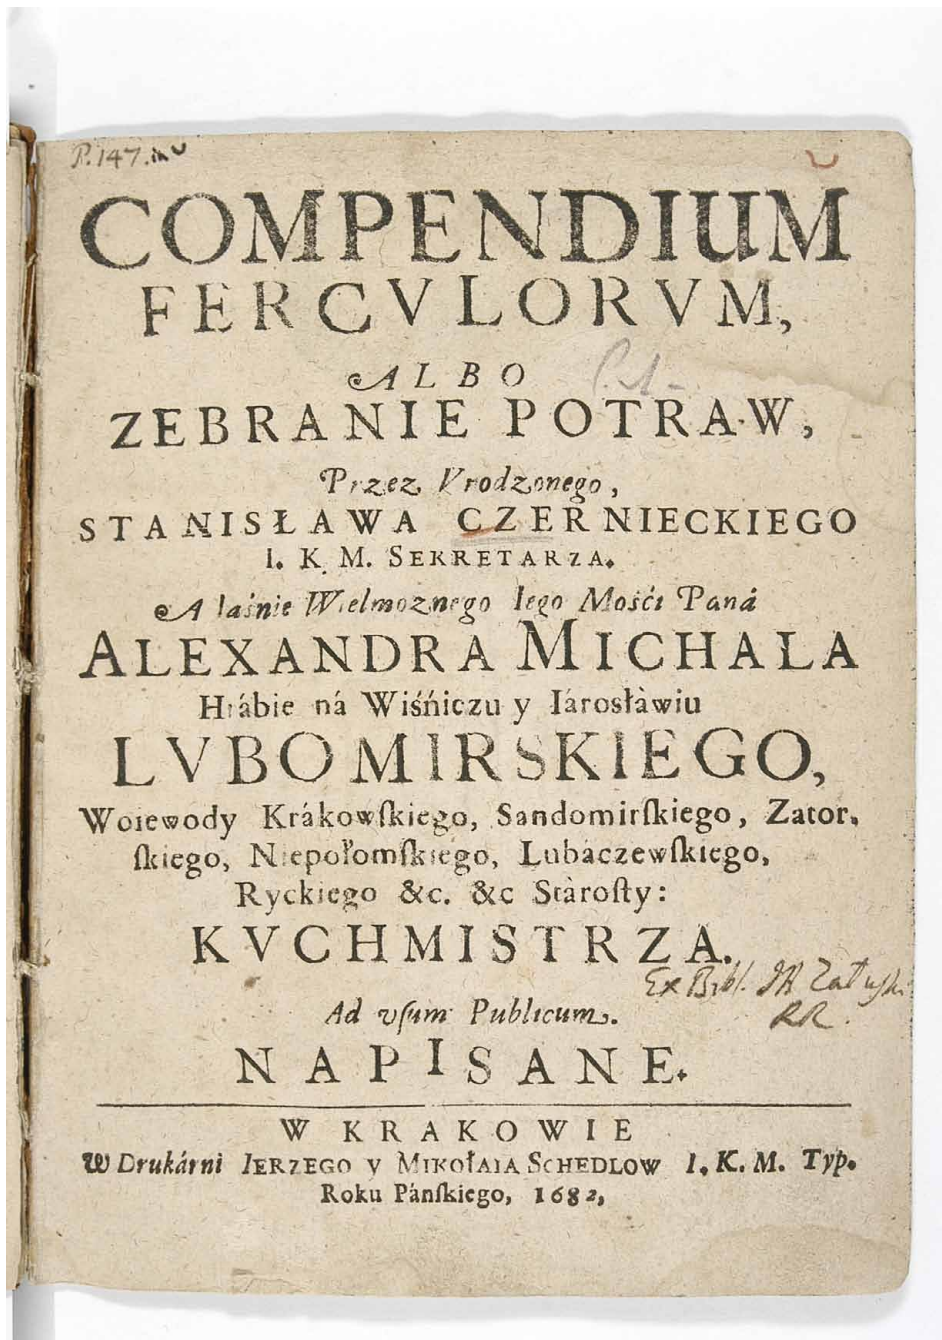 P. 147.
COMPENDIUM
FERCVLORVM,
ALBO
ZEBRANIE POTRAW,
Przez Vrodzonego,
STANISŁAWA CZERNIECKIEGO
I. K. M. SEKRETARZA.
A Iaśnie Wielmożnego Iego Mośći Páná
ALEXANDRA MICHALA
Hrábie ná Wiśńiczu y Iárosłàwiu
LVBOMIRSKIEGO,
Woiewody Krákowſkiego, Sandomirſkiego, Zator.
ſkiego, Niepołomſkiego, Lubaczewſkiego,
Ryckiego &c. &c Stàroſty:
KVCHMISTRZA.
Ex Bibl. JA Załuski
RR.
Ad vſum Publicum.
NAPISANE.
W KRAKOWIE
W Drukárni IERZEGO y MIKOŁAIA SCHEDLOW I. K. M. Typ.
Roku Pánſkiego, 1682,